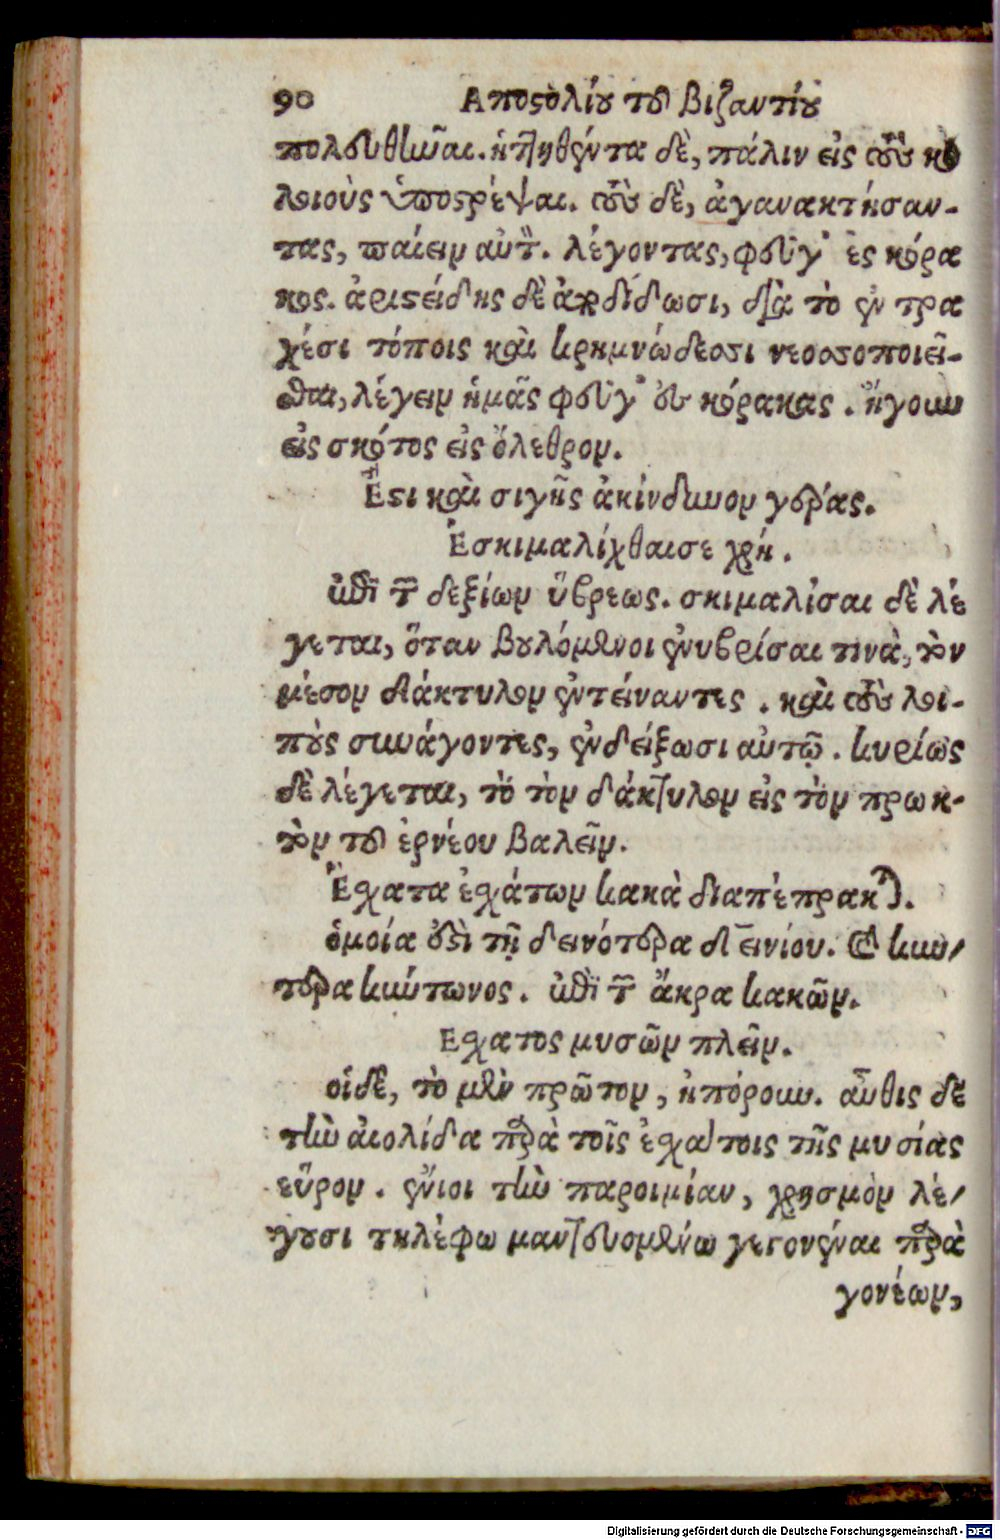 90 Αποστολίου του βιζαντίου
πολευθῆναι. ἡττηθέντα δὲ, πάλιν εἰς τοὺς κο
λοιοὺς ὑποστρέψαι. τοὺς δὲ, ἀγανακτήσαν-
τας, παίειν αὐτὸν. λέγοντας, φεῦγ' ἐς κόρα
κας. ἀριστείδης δὲ ἀποδίδωσι, διὰ τὸ ἐν τρα
χέσι τόποις καὶ κρημνώδεσσι νεοσσοποιεῖ-
σθαι, λέγειν ἡμᾶς φεῦγ' ἐς κόρακας. ἤγουν
εἰς σκότος εἰς ὄλεθρον.
Ἔστι καὶ σιγῆς ἀκίνδυνον γέρας.
Ἐσκιμαλίχθαισε χρή.
ἐπὶ τῶν δεξίων ὕβρεως. σκιμαλίσαι δὲ λέ
γεται, ὅταν βουλόμενοι ἐνυβρίσαι τινὰ, τὸν
μέσον δάκτυλον ἐντείναντες. καὶ τοὺς λοι-
ποὺς συνάγοντες, ἐνδείξωσι αὐτῷ. κυρίως
δὲ λέγεται, τὸ τὸν δάκτυλον εἰς τὸν πρωκ-
τὸν τοῦ ἐρνέου βαλεῖν.
Ἔσχατα ἐσχάτων κακὰ διαπέπρακται.
ὁμοία ἐστὶ τῇ δεινότερα δεινίου. καὶ κυν-
τερα κύπωνος. ἐπὶ τῶν ἄκρα κακῶν.
Εσχατος μυσῶν πλεῖν.
οἱδὲ, τὸ μὲν πρῶτον, ἠπόρουν. αὖθις δὲ
τὴν αἰολίδα παρὰ τοῖς ἐσχάτοις τῆς μυσίας
εὗρον. ἔνιοι τὴν παροιμίαν, χρησμὸν λέ-
γουσι τηλέφω μαντευομένω γεγονέναι παρὰ
γονέων,
Digitalisierung gefördert durch die Deutsche Forschungsgemeinschaft - DFG